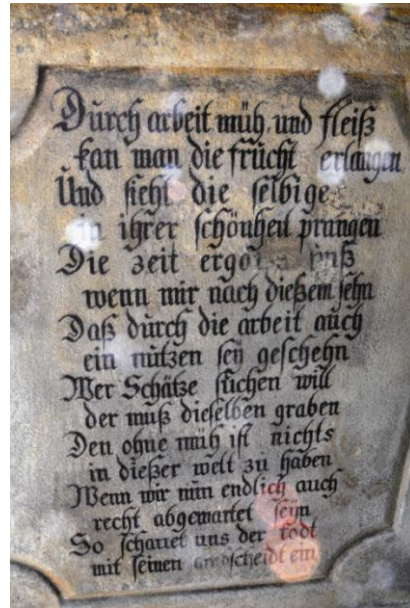 Durch arbeit müh und fleiß
kan man die frücht erlangen
Und sieht die selbige
in ihrer schönheit prangen
Die zeit unß
wenn mir nach dießem sehn
Daß durch die arbeit auch
ein nutzen seÿ geschehn
Wer Schätze suchen will
der muß dieselben graben
Den ohne müh ist nichts
in dießer welt zu haben
Wenn wir nun endlich auch
recht abgewartet seÿn
So scharret uns der todt
mit seinen ein